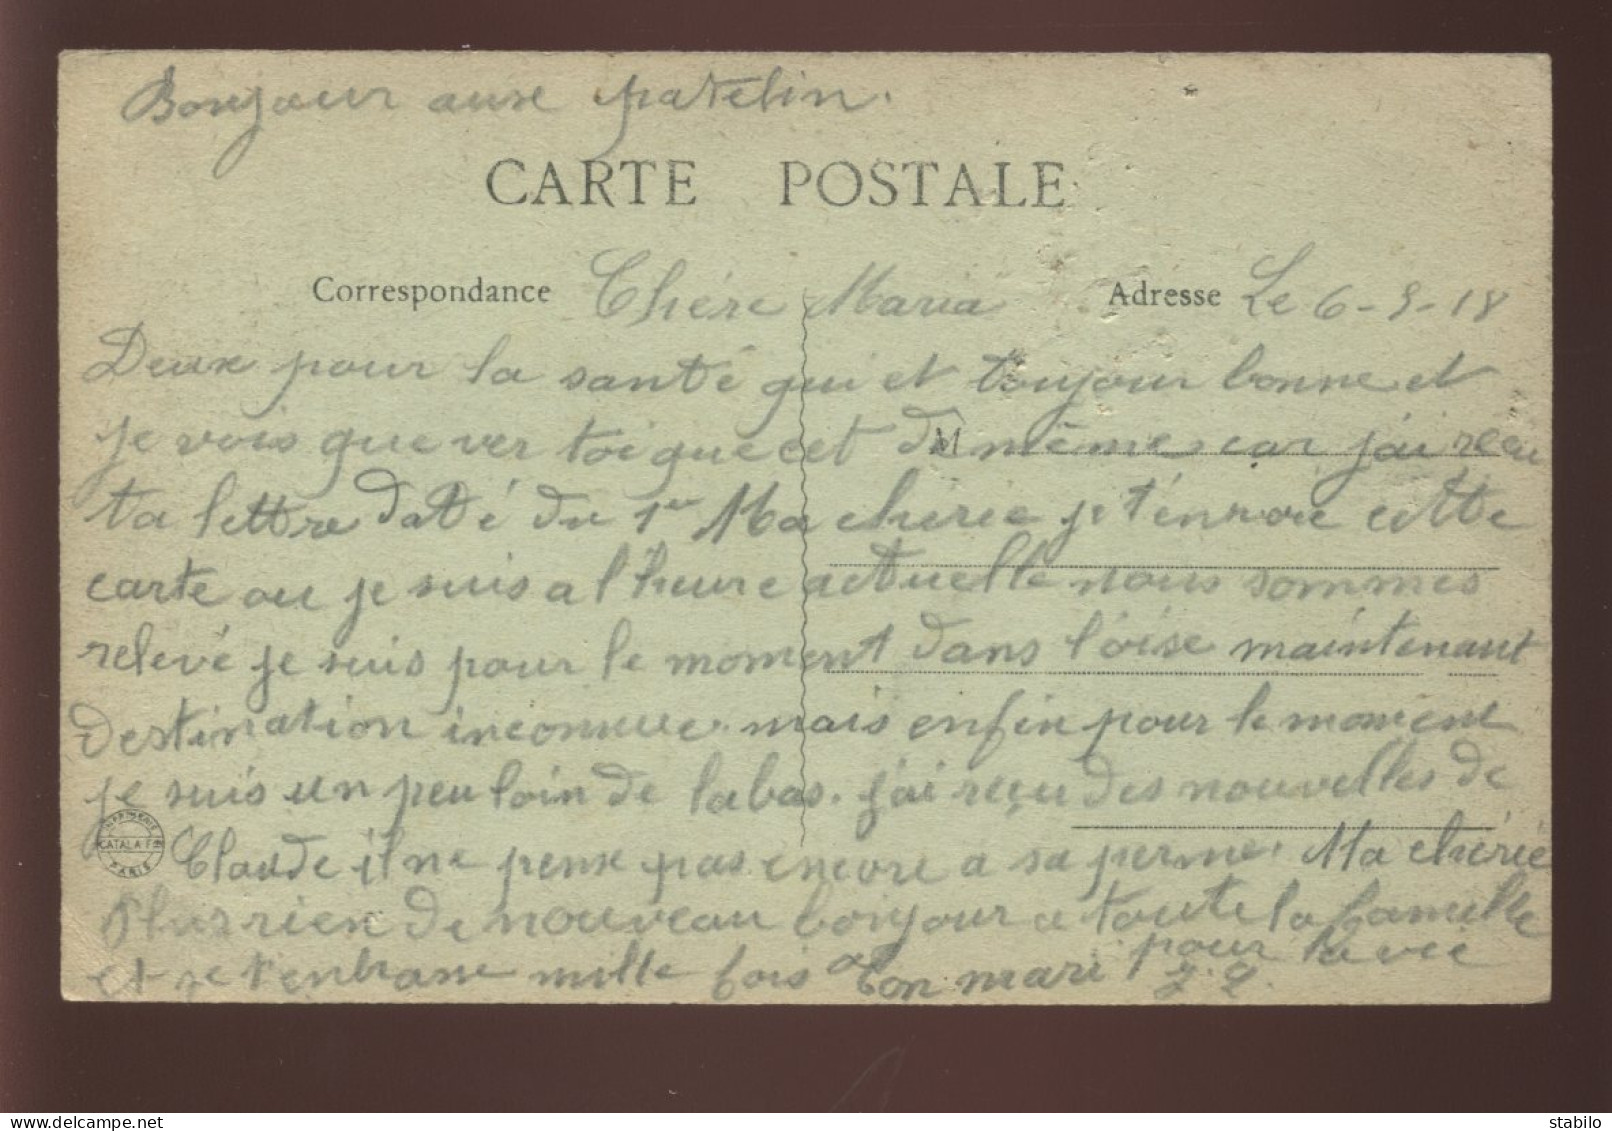 Bonjour aux patelin.
CARTE POSTALE
Correspondance Chére Maria Adresse Le 6-9-18
Deux pour la santé qui et toujour bonne et
je vois que ver toi que cet de même car j'ai recu
M
ta lettre daté du 1er Ma cherie je t'envoie cette
carte ou je suis a l'heure actuelle nous sommes
relevé je suis pour le moment dans l'oise maintenant
destination inconnue. mais enfin pour le moment
je suis un peu loin de labas. j'ai reçu des nouvelles de
IMPRIMERIE CATALA FRES PARIS
Claude il ne pense pas encore a sa perme. Ma chérie
Plus rien de nouveau bonjour a toute la famille
et je t'enbrasse mille fois ton mari pour la vie